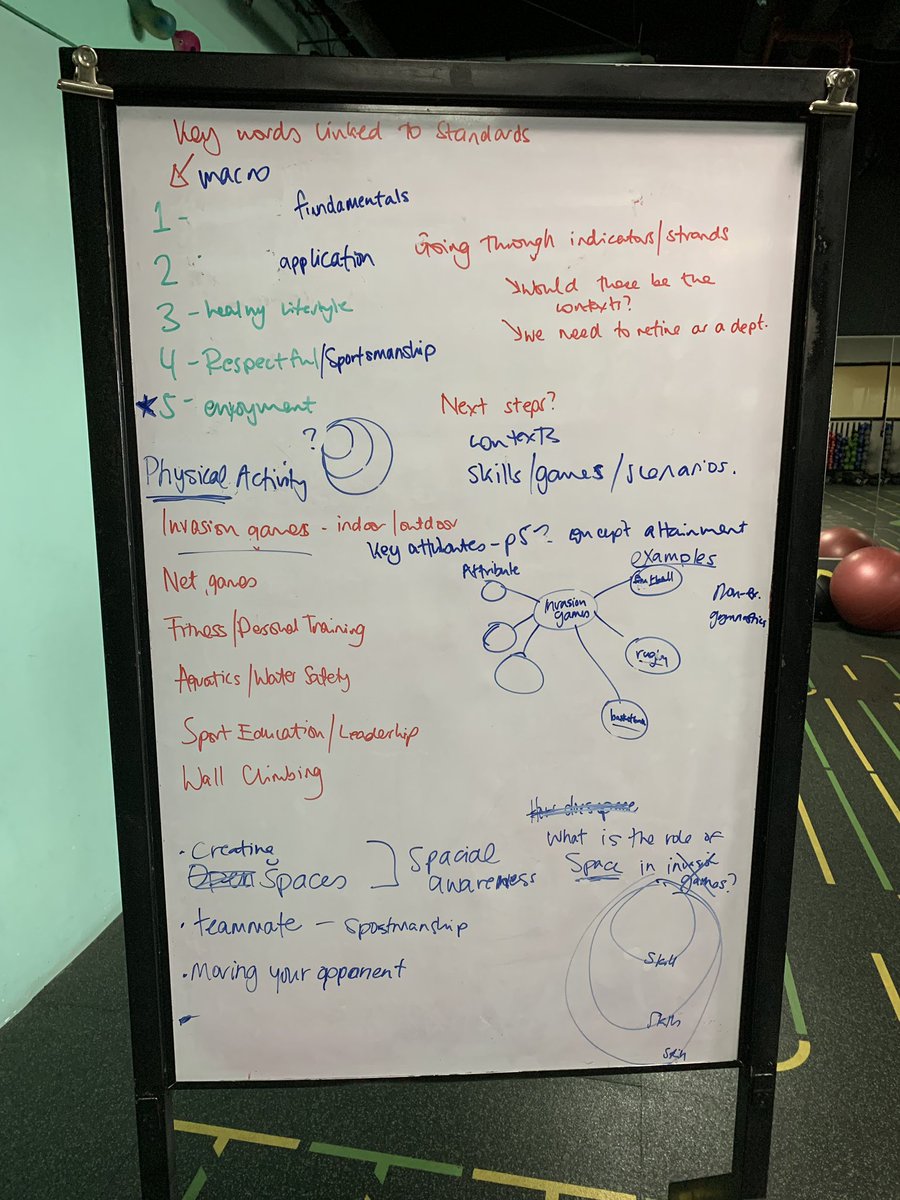 Key words linked to standards
macro
1 - fundamentals
2 - application
3 - healhy lifestyle
4 - Respectful/Sportsmanship
5 - enjoyment
Going Through indicators/strands
would these be the
contexts?
we need to refine as a dept.
Next steps?
contexts
Skills/games/scenarios.
?
Physical Activity
Invasion games - indoor/outdoor
Net games
Fitness/Personal Training
Aquatics/Water Safety
Sport Education/Leadership
Wall Climbing
Key attributes - p5? concept attainment
Attribute
examples
Invasion
games
football
rugby
basketball
Non-ex.
gymnastics
• Creating
Open Spaces
Spacial
awareness
• teammate - spostmanship
• Moving your opponent
What is the role of
Space in invasion
games?
Skill
Skills
Skill